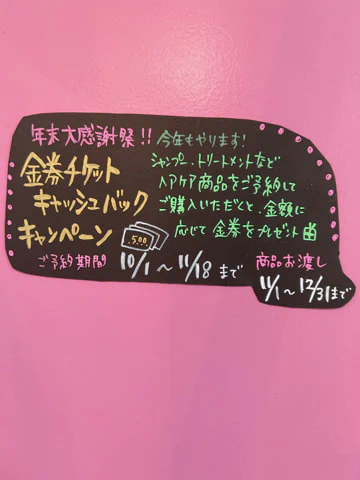 年末大感謝祭!! 今年もやります!
金券チケット
キャッシュバック
キャンペーン
シャンプー、トリートメントなど
ヘアケア商品をご予約して
ご購入いただくと、金額に
応じて金券をプレゼント
500
ご予約期間 10/1 〜 11/18 まで
商品お渡し
11/1 〜 12/31まで